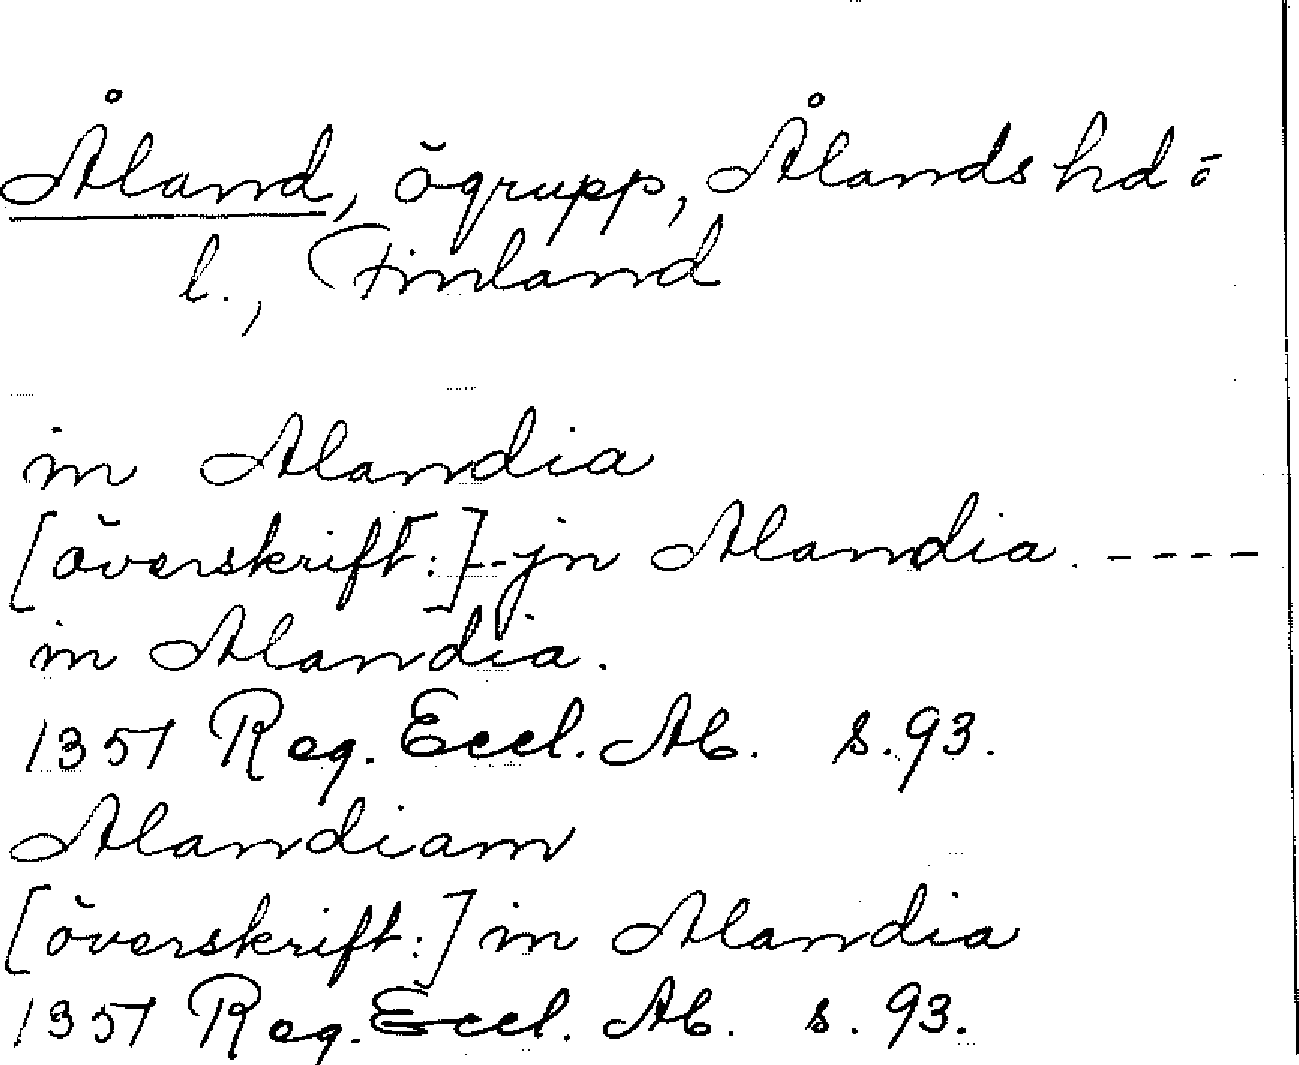 Åland, ögrupp, Ålands hd ö
l., Finland
in Alandia
[överskrift:]--jn Alandia. ----
in Alandia.
1351 Reg. Eccl. Ab. s. 93.
Alandiam
[överskrift:] in Alandia
1351 Reg. Eccl. Ab. s. 93.